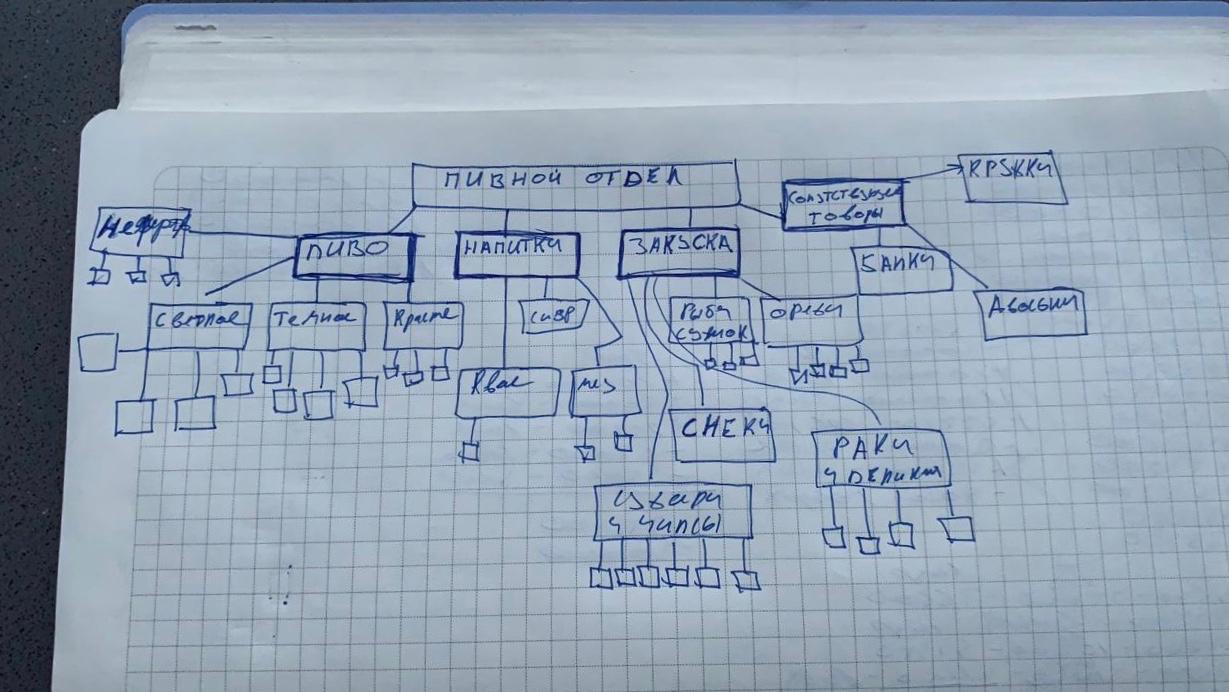 ПИВНОЙ ОТДЕЛ
КРУЖКИ
Сопутствующие
товары
ПИВО
НАПИТКИ
ЗАКУСКА
БАНКИ
Светлое
Темное
Красное
сидр
Рыба
сушок
орехи
Квас
СНЕКИ
РАКИ
И ДЕЛИКАТ
сухари
и чипсы